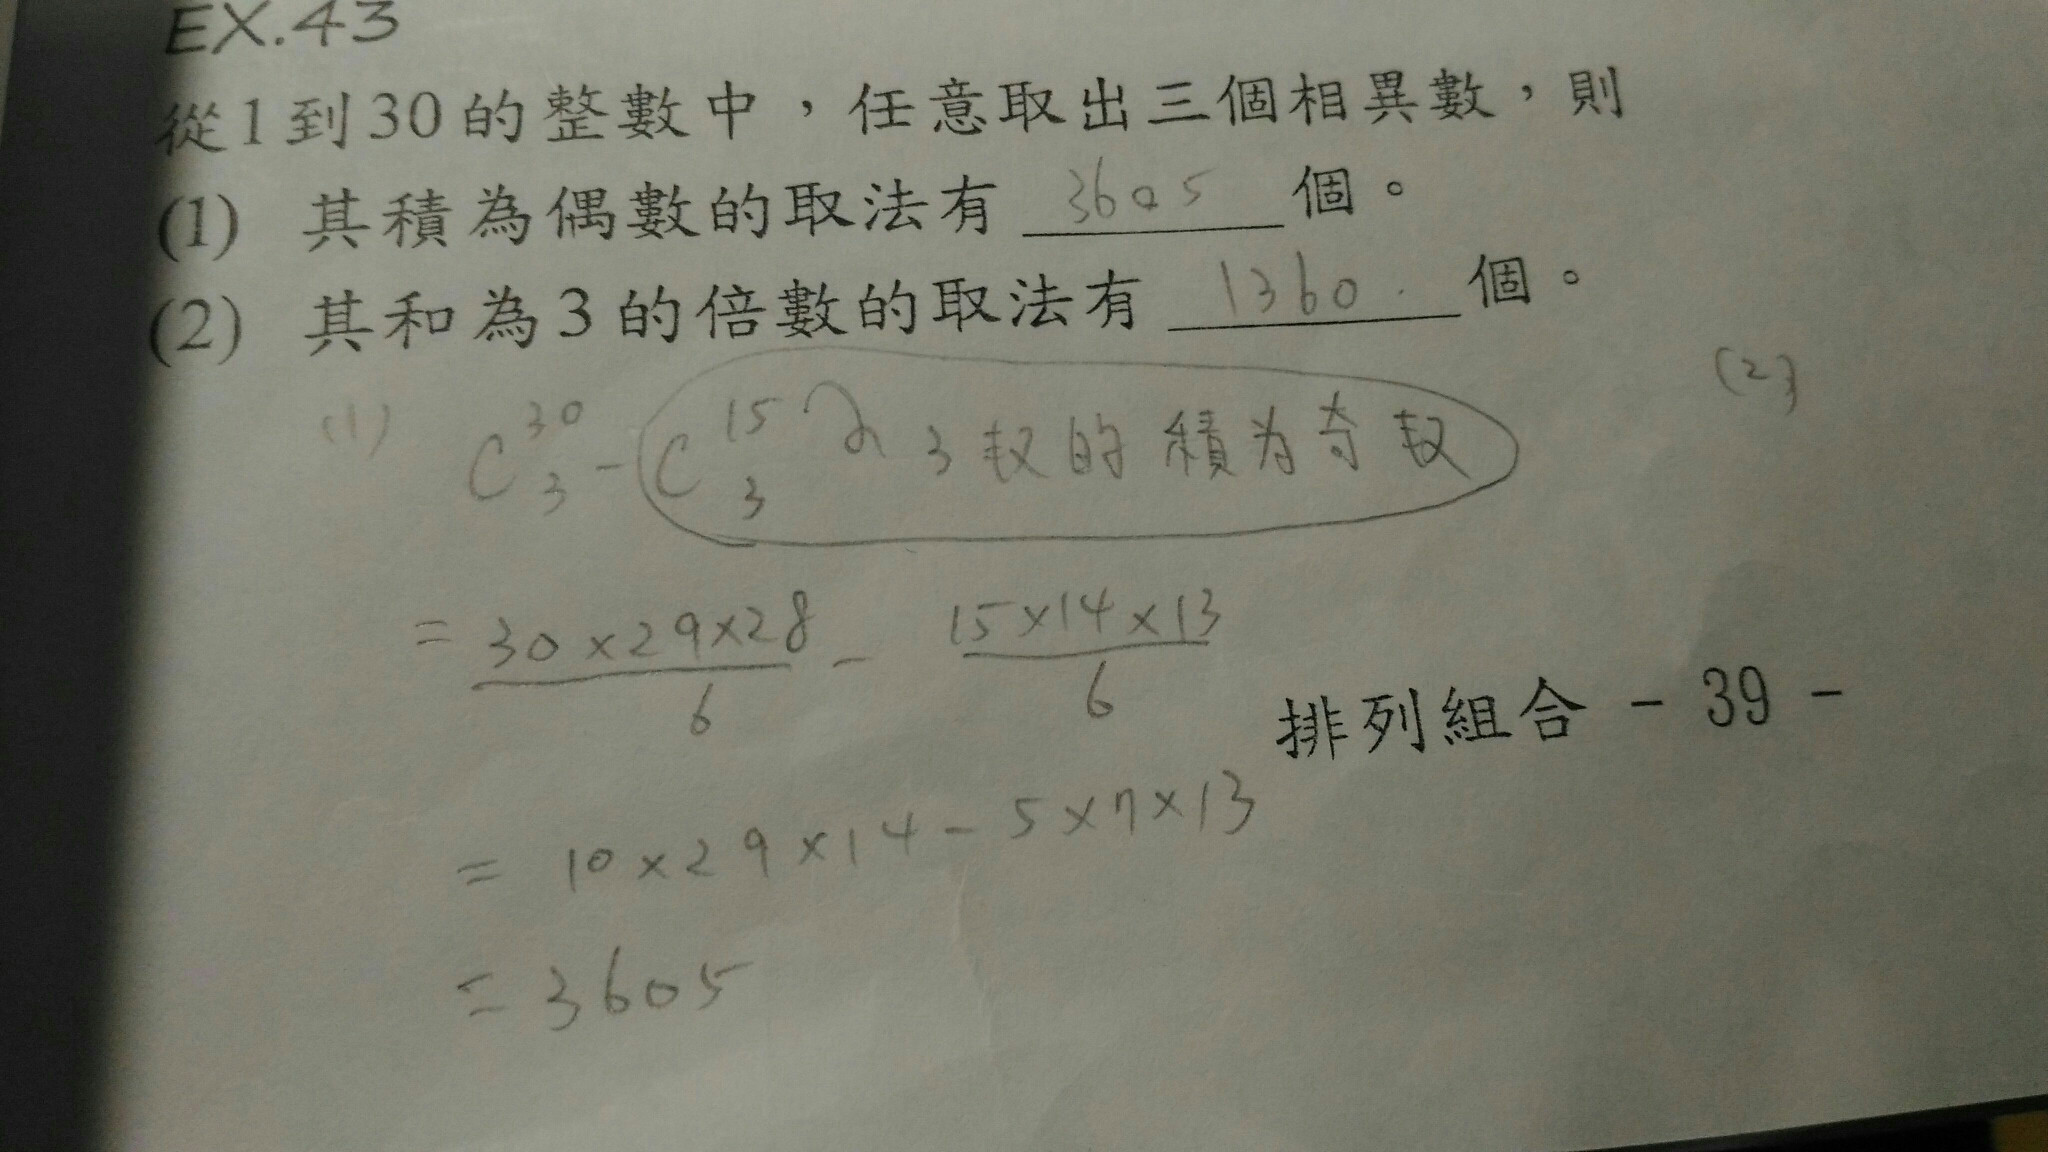 EX.43
從1到30的整數中，任意取出三個相異數，則
(1) 其積為偶數的取法有 3605 個。
(2) 其和為3的倍數的取法有 1360. 個。
(1) C³⁰₃ - C¹⁵₃ 3数的積为奇数
(2)
= 30×29×28/6 - 15×14×13/6
排列組合 - 39 -
= 10×29×14 - 5×7×13
= 3605